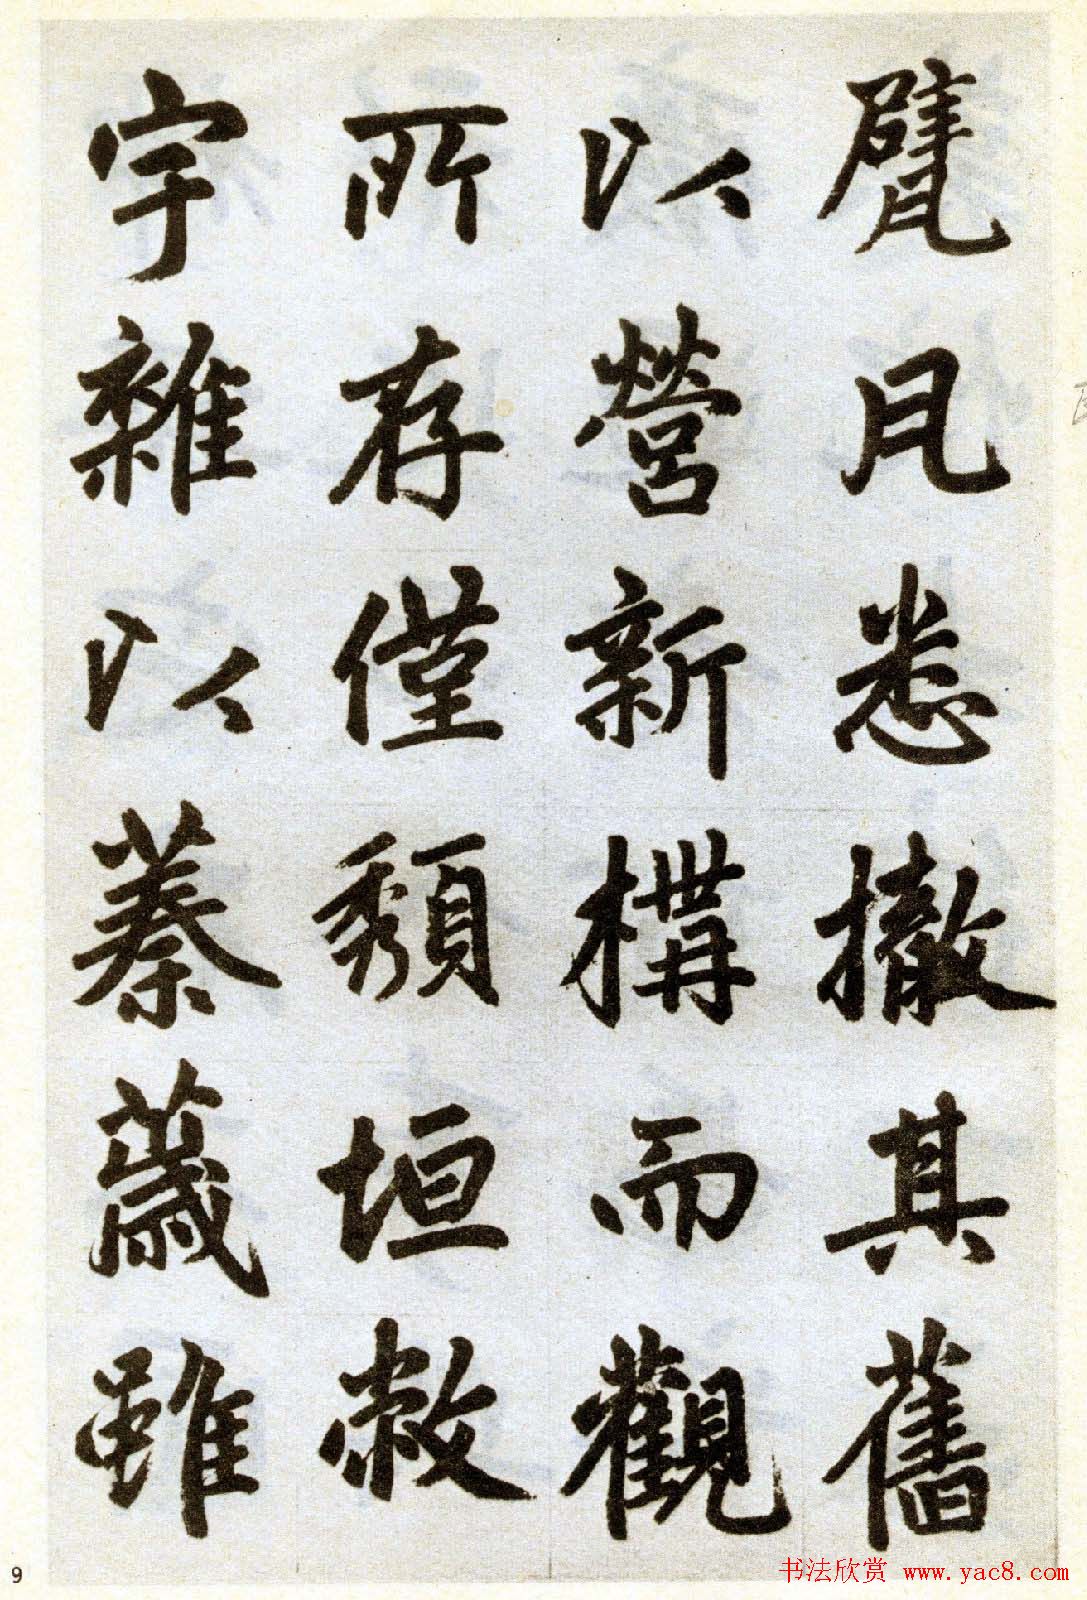 甓瓦悉撤其舊
以營新構而觀
所存僅頹垣敝
宇雜以蓁薉雖
9
书法欣赏 www.yac8.com